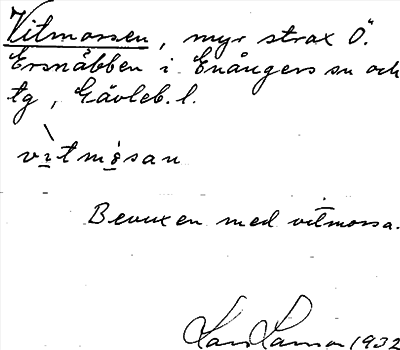 Vitmossen, myr strax Ö.
Ersnäbben i Enångers sn och
tg, Gävleb. l.
vìtmòsan
Bevuxen med vitmossa.
1932